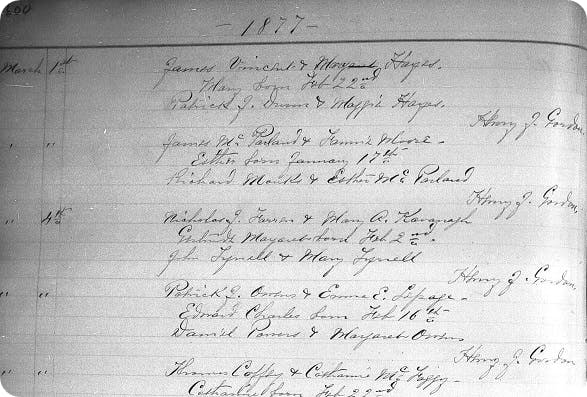 200
- 1877 -
March 1st James Vincent & Margaret Hayes.
Mary born Feb 22nd
Patrick J. Owens & Maggie Hayes.
Henry J. Gordon
" " James McParland & Fannie Moore -
Esther born January 17th
Richard Monks & Esther McParland
Henry J. Gordon.
" 4th Nicholas J. & Mary A. Kavanagh
Gertrude Margaret born Feb 2nd.
John Tyrrell & Mary Tyrrell
Henry J. Gordon.
" " Patrick J. Owens & Emma E. Lepage -
Edward Charles born Feb 16th
Daniel Powers & Margaret Owens
Henry J. Gordon
" " Thomas Coffey & Catharine
Catharine born Feb 22nd